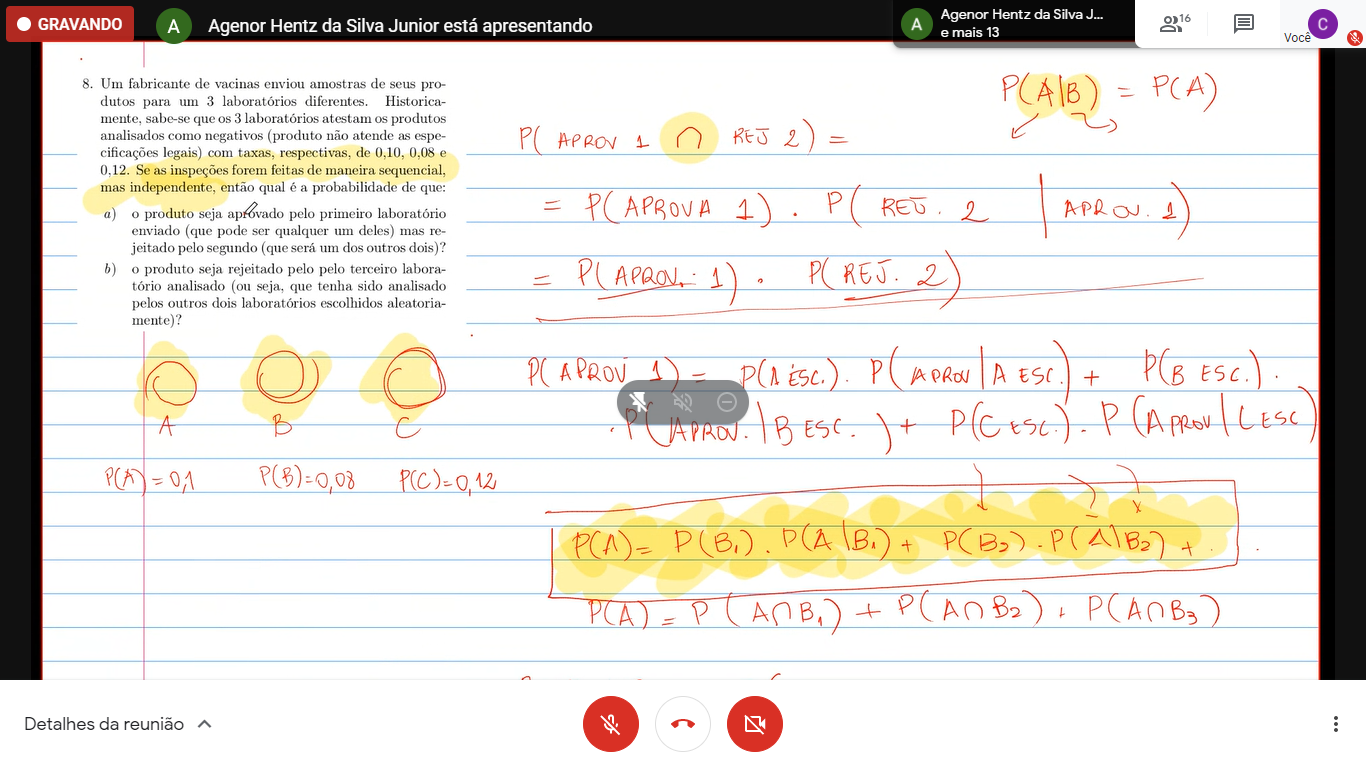 GRAVANDO
A
Agenor Hentz da Silva Junior está apresentando
A
Agenor Hentz da Silva J...
e mais 13
16
Você
C
8. Um fabricante de vacinas enviou amostras de seus pro-
dutos para um 3 laboratórios diferentes. Historica-
mente, sabe-se que os 3 laboratórios atestam os produtos
analisados como negativos (produto não atende as espe-
cificações legais) com taxas, respectivas, de 0,10, 0,08 e
0,12. Se as inspeções forem feitas de maneira sequencial,
mas independente, então qual é a probabilidade de que:
a) o produto seja aprovado pelo primeiro laboratório
enviado (que pode ser qualquer um deles) mas re-
jeitado pelo segundo (que será um dos outros dois)?
b) o produto seja rejeitado pelo pelo terceiro labora-
tório analisado (ou seja, que tenha sido analisado
pelos outros dois laboratórios escolhidos aleatoria-
mente)?
A B C
P(A) = 0,1 P(B)=0,08 P(C)=0,12
P(A|B) = P(A)
P( APROV 1 ∩ REJ 2) =
= P(APROVA 1) . P( REJ. 2 | APROV. 1)
= P(APROV. 1) . P(REJ. 2)
P(APROV 1) = P(A ESC.). P(APROV|A ESC.) + P(B ESC.) .
. P(APROV.|B ESC.) + P(C ESC.). P(APROV|C ESC)
P(A)= P(B₁) . P(A|B₁) + P(B₂) . P(A|B₂) + .
P(A) = P(A∩B₁) + P(A∩B₂) + P(A∩B₃)
Detalhes da reunião